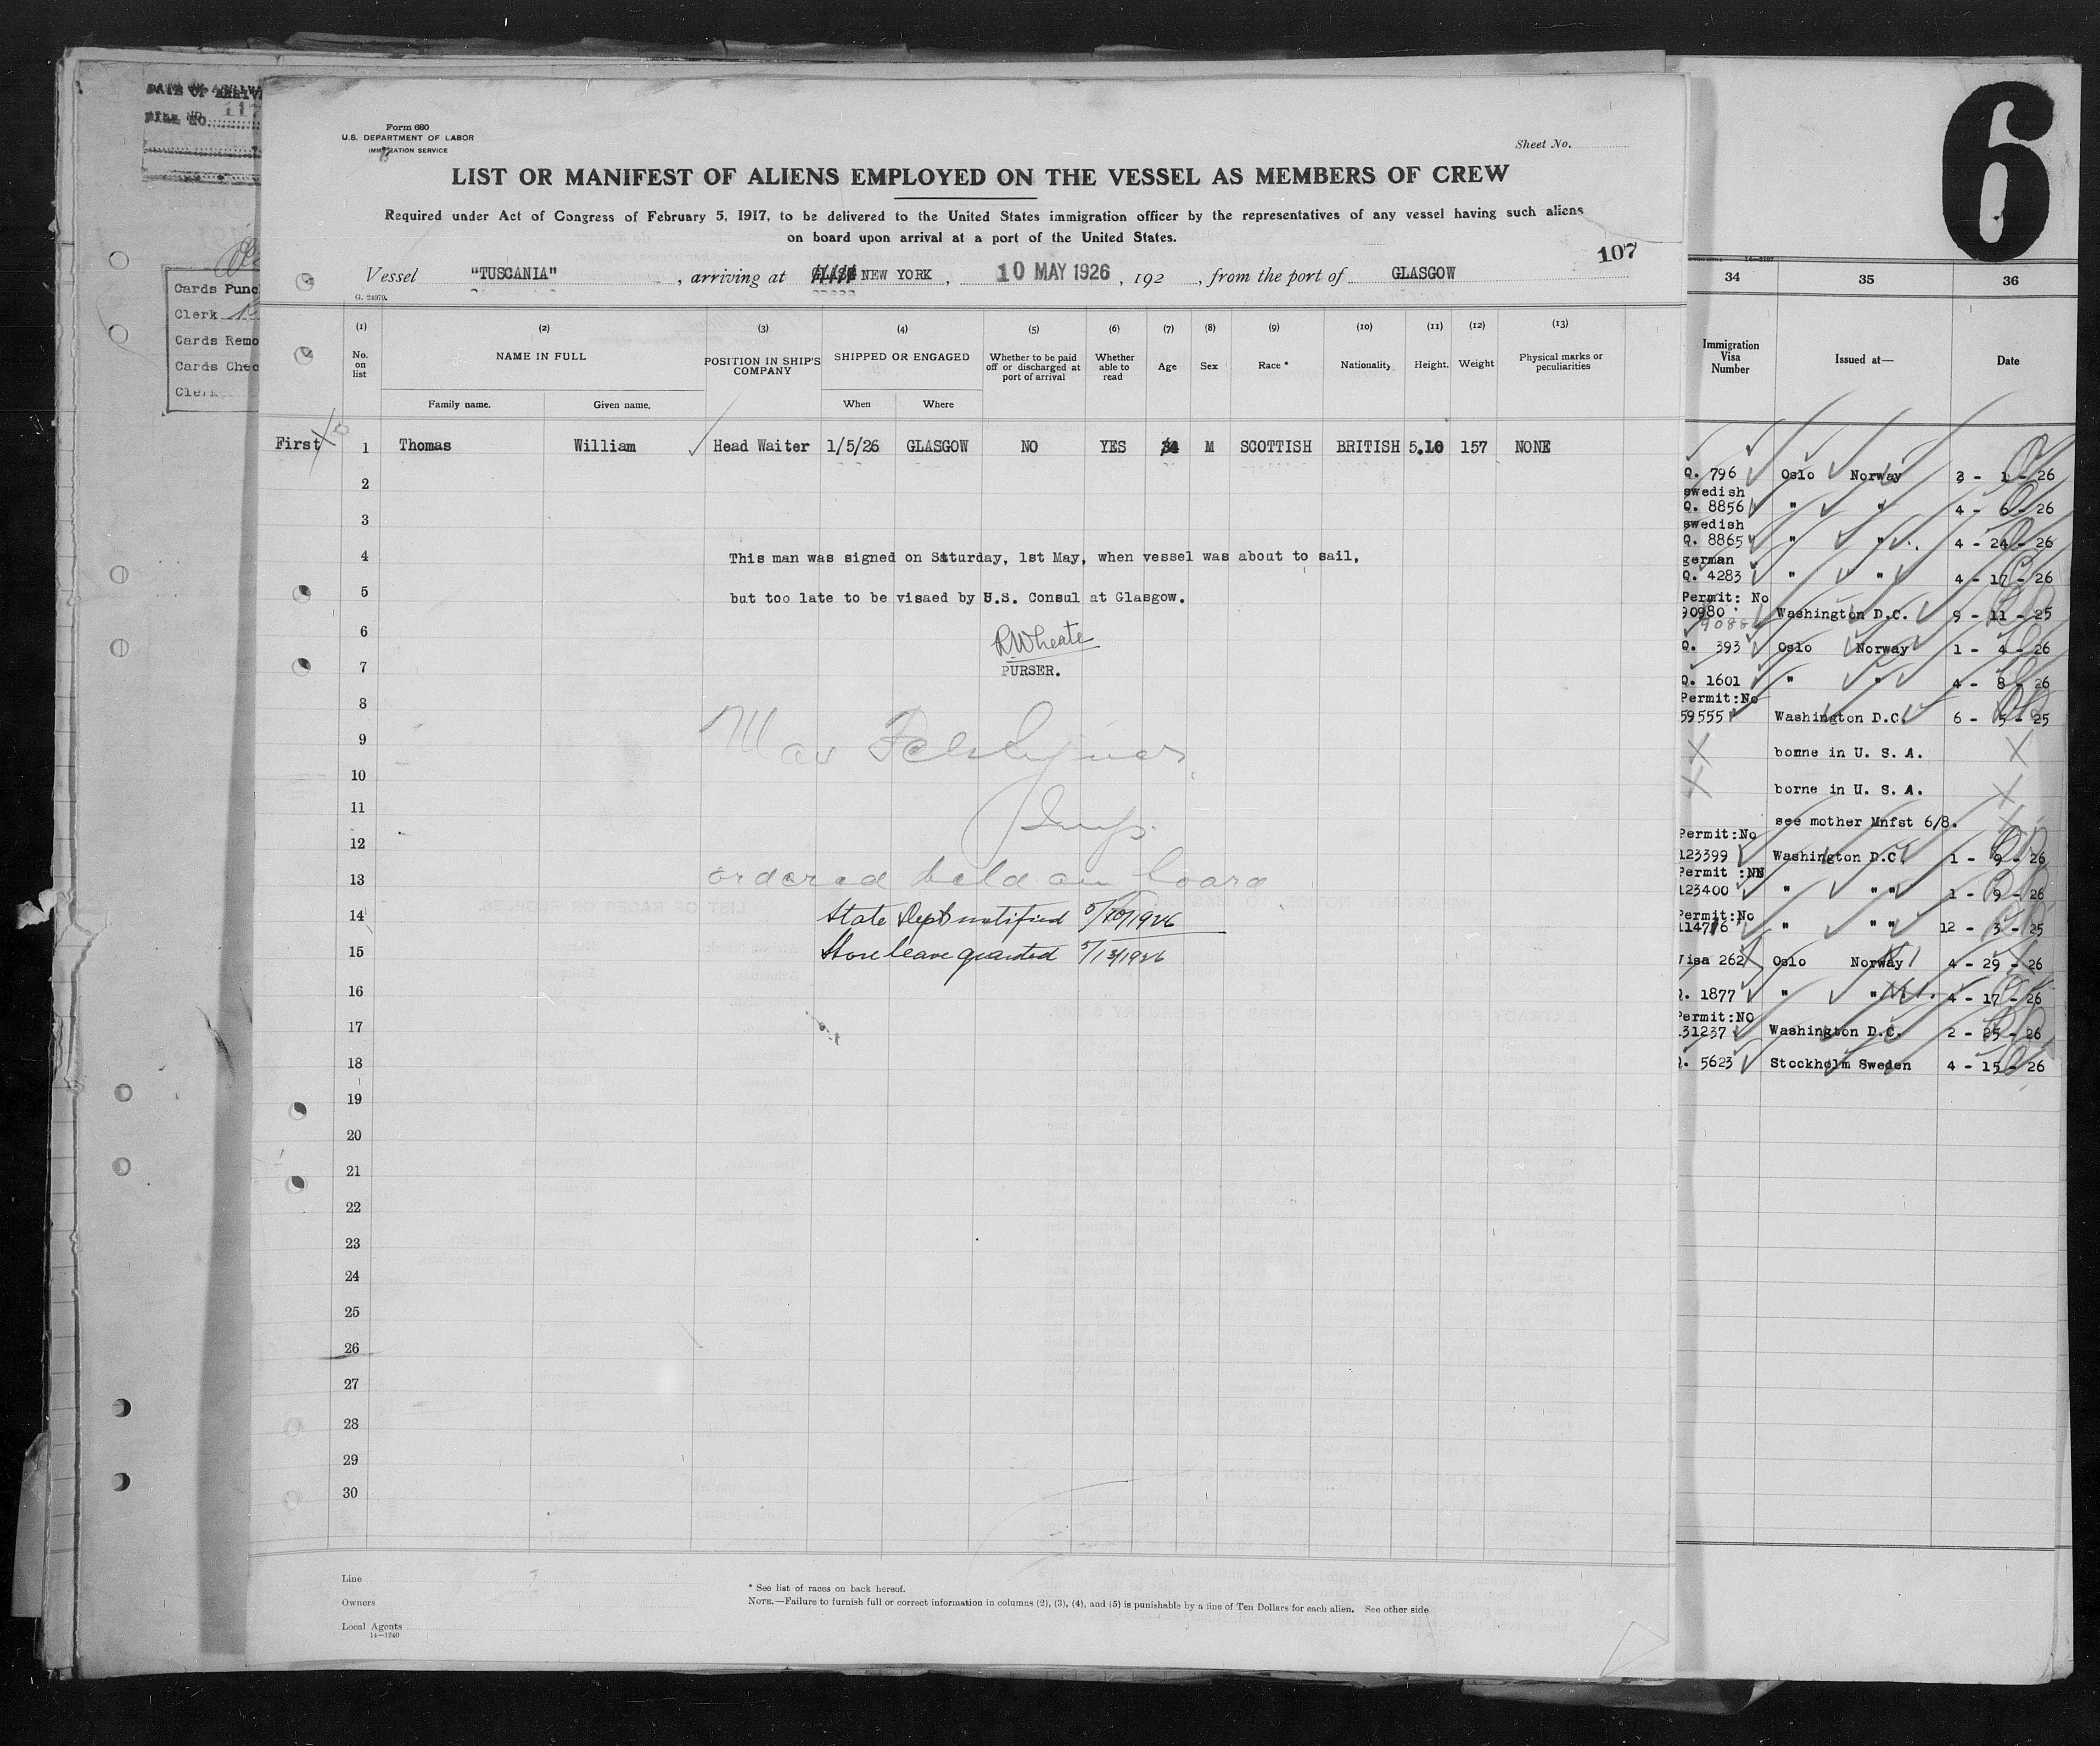 DATE OF ARRIV
FILE NO. 117
Cards Punc
Clerk
Cards Remo
Cards Chec
Clerk
6
Form 680
U.S. DEPARTMENT OF LABOR
IMMIGRATION SERVICE
Sheet No.
LIST OR MANIFEST OF ALIENS EMPLOYED ON THE VESSEL AS MEMBERS OF CREW
Required under Act of Congress of February 5, 1917, to be delivered to the United States immigration officer by the representatives of any vessel having such aliens
on board upon arrival at a port of the United States.
107
Vessel "TUSCANIA", arriving at NEW YORK, 10 MAY 1926, 192 , from the port of GLASGOW
G. 24979.
(1) (2) (3) (4) (5) (6) (7) (8) (9) (10) (11) (12) (13)
No. on list NAME IN FULL POSITION IN SHIP'S COMPANY SHIPPED OR ENGAGED Whether to be paid off or discharged at port of arrival Whether able to read Age Sex Race * Nationality Height. Weight Physical marks or peculiarities
Family name. Given name. When Where
First 1 Thomas William Head Waiter 1/5/26 GLASGOW NO YES 34 M SCOTTISH BRITISH 5.10 157 NONE
2
3
4 This man was signed on Saturday, 1st May, when vessel was about to sail,
5 but too late to be visaed by U.S. Consul at Glasgow.
6 RWheate
7 PURSER.
8
9
10
11 Insp.
12
13 ordered held on board
14 State Dept notified 5/10/1926
15 Shore leave granted 5/12/1926
16
17
18
19
20
21
22
23
24
25
26
27
28
29
30
Line
Owners
Local Agents
14—1240
* See list of races on back hereof.
NOTE.—Failure to furnish full or correct information in columns (2), (3), (4), and (5) is punishable by a fine of Ten Dollars for each alien. See other side
34 35 36
Immigration Visa Number Issued at— Date
Q. 796 Oslo Norway 3 - 1 - 26
swedish
Q. 8856 " " 4 - 6 - 26
swedish
Q. 8865 " " 4 - 24 - 26
german
Q. 4283 " " 4 - 17 - 26
Permit: No
90980 Washington D.C. 9 - 11 - 25
Q. 393 Oslo Norway 1 - 4 - 26
Q. 1601 " " 4 - 8 - 26
Permit:No
59555 Washington D.C. 6 - 5 - 25
X borne in U. S. A. X
X borne in U. S. A. X
see mother Mnfst 6/8.
Permit:No
123399 Washington D.C. 1 - 9 - 26
Permit :NN
123400 " " " 1 - 9 - 26
Permit:No
114776 " " " 12 - 3 - 25
Visa 262 Oslo Norway 4 - 29 - 26
Q. 1877 " " 4 - 17 - 26
Permit:NO
131237 Washington D.C. 2 - 25 - 26
Q. 5623 Stockholm Sweden 4 - 15 - 26